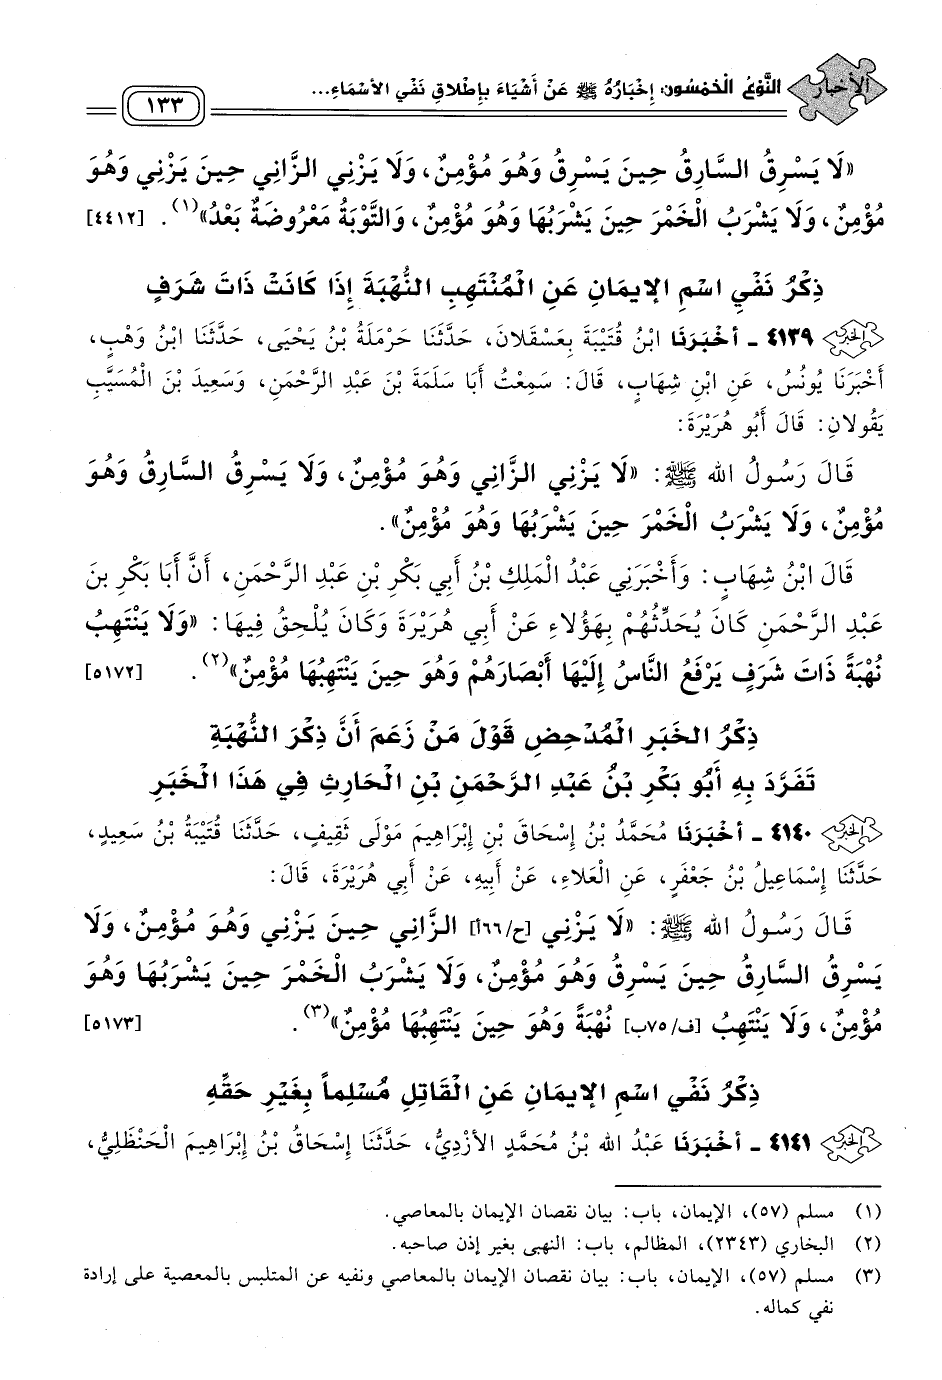 الأخبار
النَّوْعُ الْخَمْسُون: إِخْبَارُهُ ﷺ عَنْ أَشْيَاءَ بِإِطْلَاقِ نَفْيِ الأَسْمَاءِ...
١٣٣
«لَا يَسْرِقُ السَّارِقُ حِينَ يَسْرِقُ وَهُوَ مُؤْمِنٌ، وَلَا يَزْنِي الزَّانِي حِينَ يَزْنِي وَهُوَ
مُؤْمِنٌ، وَلَا يَشْرَبُ الْخَمْرَ حِينَ يَشْرَبُهَا وَهُوَ مُؤْمِنٌ، وَالتَّوْبَةُ مَعْرُوضَةٌ بَعْدُ»(١). [٤٤١٢]
ذِكْرُ نَفْيِ اسْمِ الإِيمَانِ عَنِ الْمُنْتَهِبِ النُّهْبَةَ إِذَا كَانَتْ ذَاتَ شَرَفٍ
٤١٣٩ - أَخْبَرَنَا ابْنُ قُتَيْبَةَ بِعَسْقَلَانَ، حَدَّثَنَا حَرْمَلَةُ بْنُ يَحْيَى، حَدَّثَنَا ابْنُ وَهْبٍ،
أَخْبَرَنَا يُونُسُ، عَنِ ابْنِ شِهَابٍ، قَالَ: سَمِعْتُ أَبَا سَلَمَةَ بْنَ عَبْدِ الرَّحْمَنِ، وَسَعِيدَ بْنَ الْمُسَيَّبِ
يَقُولَانِ: قَالَ أَبُو هُرَيْرَةَ:
قَالَ رَسُولُ الله ﷺ: «لَا يَزْنِي الزَّانِي وَهُوَ مُؤْمِنٌ، وَلَا يَسْرِقُ السَّارِقُ وَهُوَ
مُؤْمِنٌ، وَلَا يَشْرَبُ الْخَمْرَ حِينَ يَشْرَبُهَا وَهُوَ مُؤْمِنٌ».
قَالَ ابْنُ شِهَابٍ: وَأَخْبَرَنِي عَبْدُ الْمَلِكِ بْنُ أَبِي بَكْرِ بْنِ عَبْدِ الرَّحْمَنِ، أَنَّ أَبَا بَكْرِ بْنَ
عَبْدِ الرَّحْمَنِ كَانَ يُحَدِّثُهُمْ بِهَؤُلَاءِ عَنْ أَبِي هُرَيْرَةَ وَكَانَ يُلْحِقُ فِيهَا: «وَلَا يَنْتَهِبُ
نُهْبَةً ذَاتَ شَرَفٍ يَرْفَعُ النَّاسُ إِلَيْهَا أَبْصَارَهُمْ وَهُوَ حِينَ يَنْتَهِبُهَا مُؤْمِنٌ»(٢). [٥١٧٢]
ذِكْرُ الْخَبَرِ الْمُدْحِضِ قَوْلَ مَنْ زَعَمَ أَنَّ ذِكْرَ النُّهْبَةِ
تَفَرَّدَ بِهِ أَبُو بَكْرِ بْنُ عَبْدِ الرَّحْمَنِ بْنِ الْحَارِثِ فِي هَذَا الْخَبَرِ
٤١٤٠ - أَخْبَرَنَا مُحَمَّدُ بْنُ إِسْحَاقَ بْنِ إِبْرَاهِيمَ مَوْلَى ثَقِيفٍ، حَدَّثَنَا قُتَيْبَةُ بْنُ سَعِيدٍ،
حَدَّثَنَا إِسْمَاعِيلُ بْنُ جَعْفَرٍ، عَنِ الْعَلَاءِ، عَنْ أَبِيهِ، عَنْ أَبِي هُرَيْرَةَ، قَالَ:
قَالَ رَسُولُ الله ﷺ: «لَا يَزْنِي [ح/٦٦أ] الزَّانِي حِينَ يَزْنِي وَهُوَ مُؤْمِنٌ، وَلَا
يَسْرِقُ السَّارِقُ حِينَ يَسْرِقُ وَهُوَ مُؤْمِنٌ، وَلَا يَشْرَبُ الْخَمْرَ حِينَ يَشْرَبُهَا وَهُوَ
مُؤْمِنٌ، وَلَا يَنْتَهِبُ [ف/٧٥ب] نُهْبَةً وَهُوَ حِينَ يَنْتَهِبُهَا مُؤْمِنٌ»(٣). [٥١٧٣]
ذِكْرُ نَفْيِ اسْمِ الإِيمَانِ عَنِ الْقَاتِلِ مُسْلِماً بِغَيْرِ حَقِّهِ
٤١٤١ - أَخْبَرَنَا عَبْدُ الله بْنُ مُحَمَّدٍ الأَزْدِيُّ، حَدَّثَنَا إِسْحَاقُ بْنُ إِبْرَاهِيمَ الْحَنْظَلِيُّ،
(١) مسلم (٥٧)، الإيمان، باب: بيان نقصان الإيمان بالمعاصي.
(٢) البخاري (٢٣٤٣)، المظالم، باب: النهبى بغير إذن صاحبه.
(٣) مسلم (٥٧)، الإيمان، باب: بيان نقصان الإيمان بالمعاصي ونفيه عن المتلبس بالمعصية على إرادة
نفي كماله.